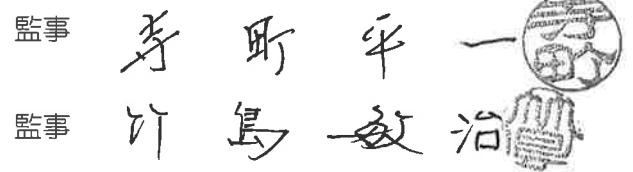 監事 寿町平一
監事 竹島敏治